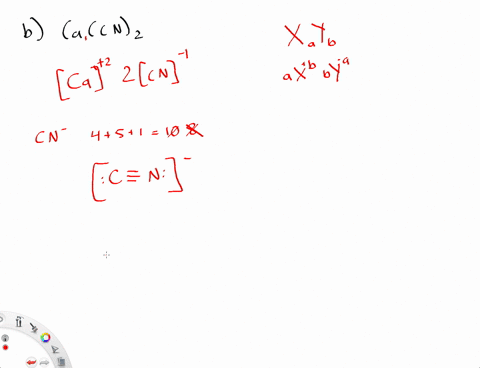 b) Ca(CN)₂
XₐY_b
[Ca]⁺² 2[CN]⁻¹
aX⁺ᵇ bY⁻ᵃ
CN⁻ 4+5+1=10
[:C≡N:]⁻